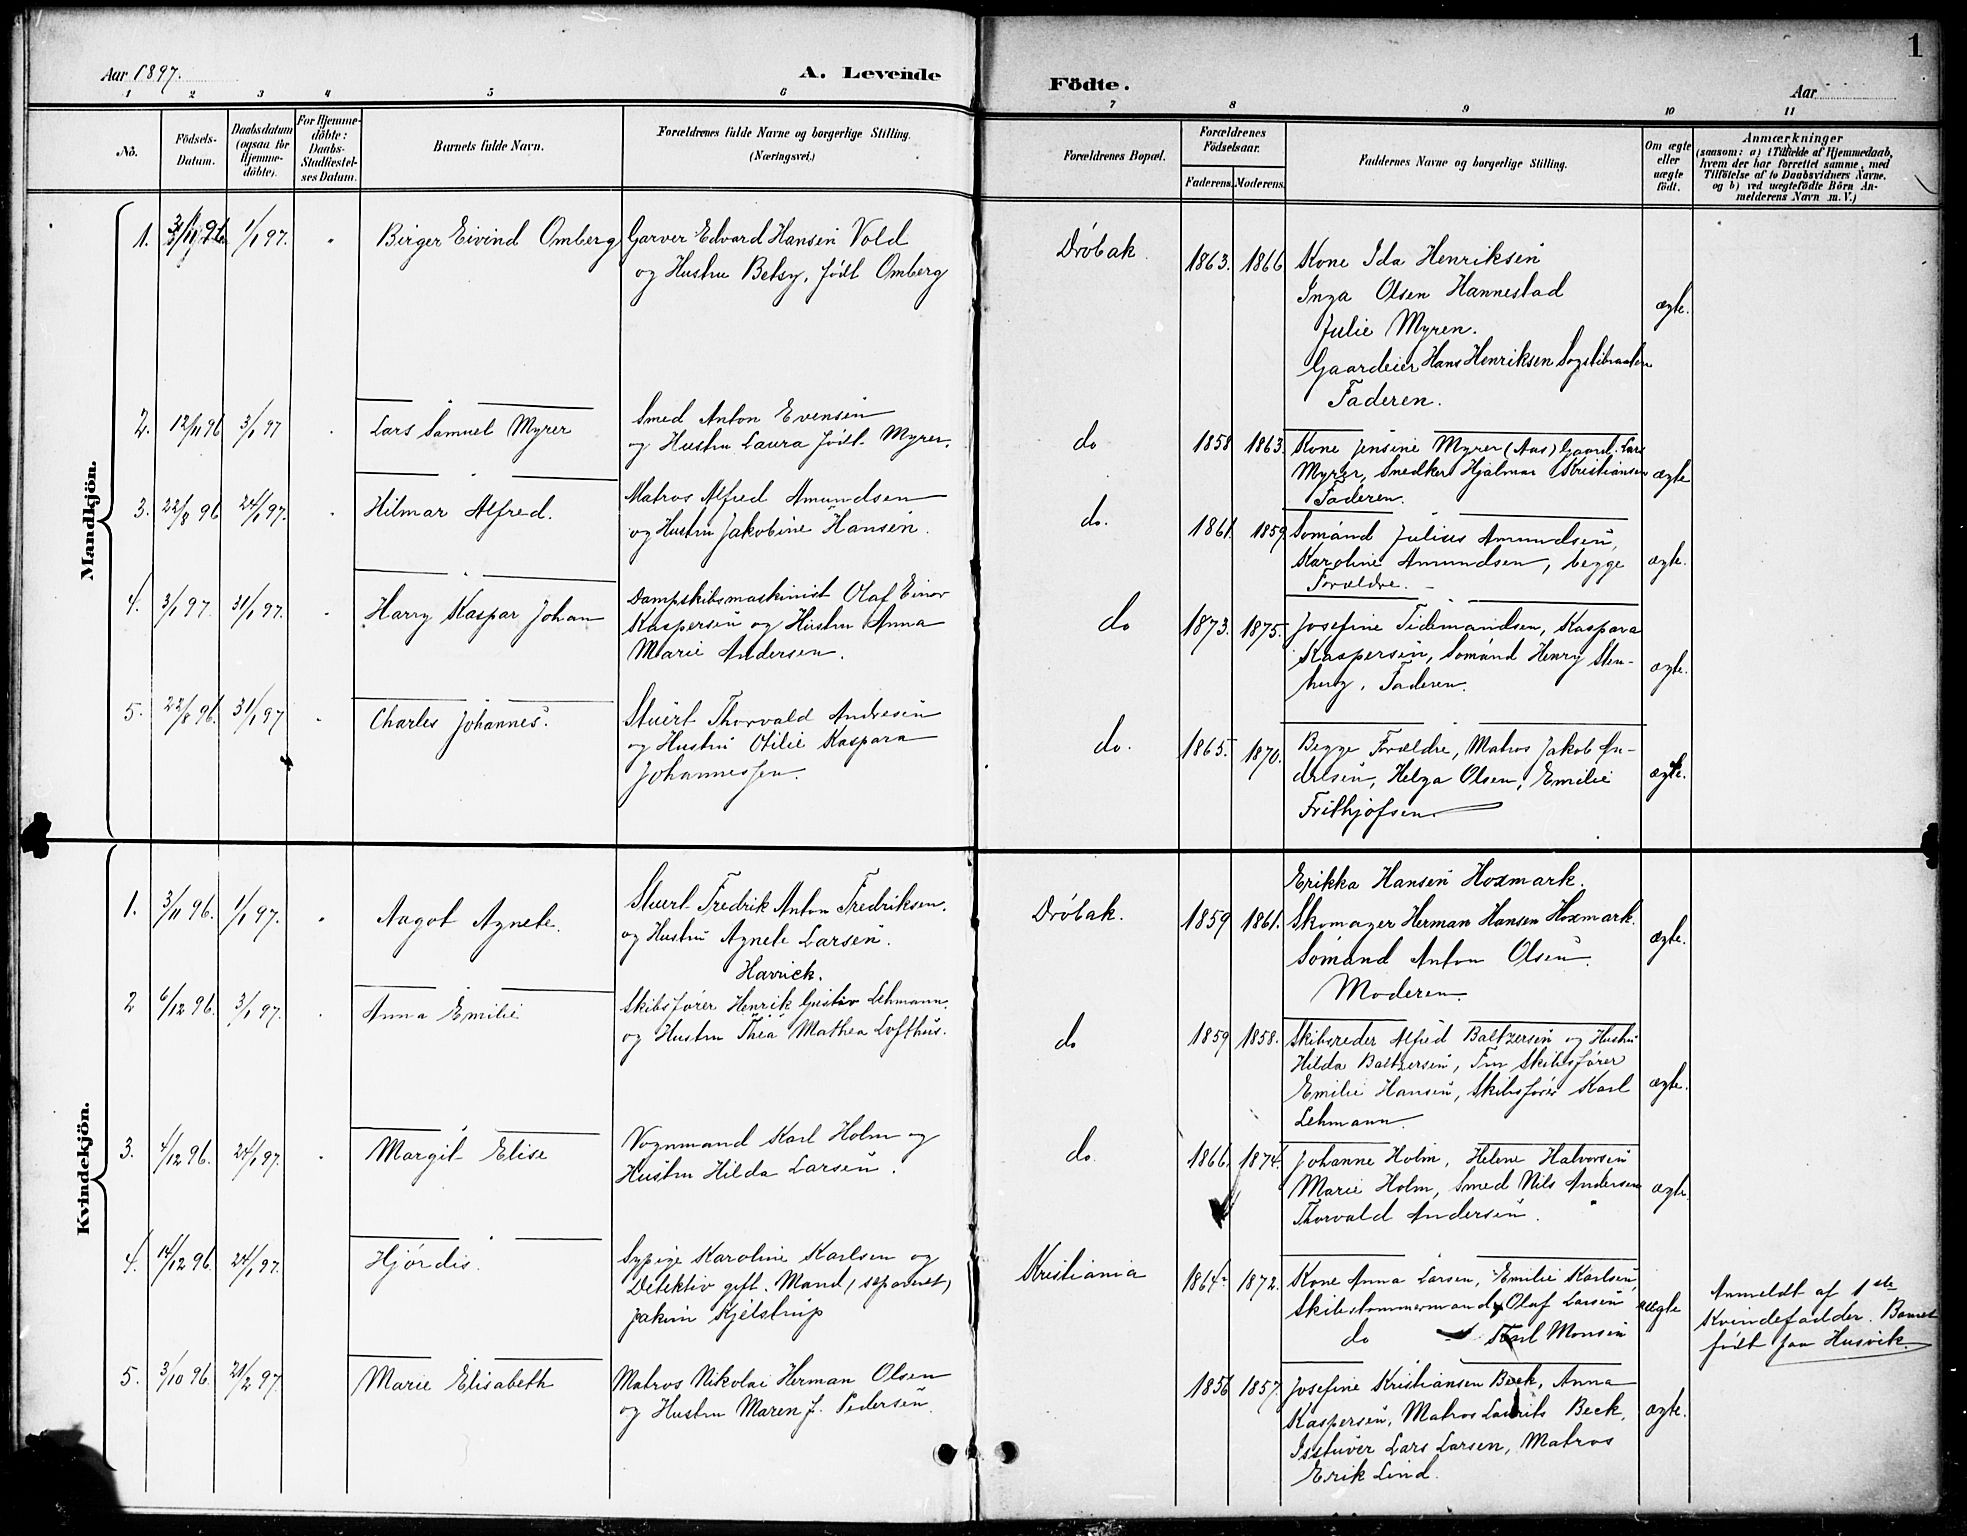 1
Aar 1897.
A. Levende
Födte.
Aar
1 2 3 4 5 6
7 8 9 10 11
No.
Födsels-Datum.
Daabsdatum (ogsaa for Hjemme-döbte).
For Hjemme-döbte: Daabs-Stadfæstel-ses Datum.
Barnets fulde Navn.
Forældrenes fulde Navne og borgerlige Stilling.
(Næringsvei.)
Forældrenes Bopæl.
Forældrenes Födselsaar.
Faderens. Moderens.
Faddernes Navne og borgerlige Stilling.
Om ægte eller uægte födt.
Anmærkninger
(saasom: a) i Tilfælde af Hjemmedaab,
hvem der har forrettet samme, med
Tilföielse af to Daabsvidners Navne.
og b) ved uægtefödte Börn An-
melderens Navn m. V.)
Mandkjön.
1. 1/1 97. Birger Eivind Omberg Garver Edvard Hansen Vold
og Hustru Betsy, født Omberg
Drøbak 1863. 1866 Kone Ida Henriksen
Inga Olsen Hannestad
Julie Myren.
Gaardeier Hans Henriksen
Faderen.
ægte.
2. 12/11 96 3/1 97 Lars Samuel Myrer Smed Anton Evensen
og Hustru Laura født Myrer.
do 1858 1863. Kone Jensine Myrer (Aas) Gaard. Lars
Myrer, Snedker Hjalmar Kristiansen
Faderen.
ægte
3. 22/8 96 24/1 97. Hilmar Alfred. Matros Alfred Amundsen
og Hustru Jakobine Hansen.
do. 1861. 1859. Sømand Julius Amundsen,
Karoline Amundsen, begge
Forældre.
ægte.
4. 3/1 97. 31/1 97. Harry Kaspar Johan Dampskibsmaskinist Olaf Einar
Kaspersen og Hustru Anna
Marie Andersen.
do 1873. 1875. Josefine Tidemandsen, Kaspara
Kaspersen, Sømand Henry Sten-
berg, Faderen.
ægte.
5. 22/8 96. 31/1 97 Charles Johannes. Stuert Thorvald Andresen
og Hustru Otilie Kaspara
Johannessen.
do. 1865. 1870. Begge Forældre, Matros Jakob An-
dresen, Helga Olsen, Emilie
Frithjofsen.
ægte.
Kvindekjön.
1. 3/11 96. 1/1 97. Aagot Agnete. Stuert Fredrik Anton Fredriksen.
og Hustru Agnete Larsen.
Drøbak. 1859 1861. Erikka Hansen Hoxmark.
Skomager Herman Hansen Hoxmark.
Sømand Anton Olsen.
Moderen.
ægte.
Havrick.
2 6/12 96. 3/1 97. Anna Emilie Skibsfører Henrik Gustav Lehmann.
og Hustru Thea Mathea Lofthus.
do 1859 1858. Skibsreder Alfred Baltzersen og Hustru
Hilda Baltzersen, Fru Skibsfører
Emilie Hansen, Skibsfører Karl
Lehmann.
ægte.
3. 4/12 96. 24/1 97. Margit Elise Vognmand Karl Holm og
Hustru Hilda Larsen.
do. 1866. 1874. Johanne Holm, Helene Halvorsen
Marie Holm, Smed Nils Andersen
Thorvald Andersen.
ægte
4. 14/12 96. 24/1 97. Hjørdis. Sypige Karoline Karlsen og
Detektiv gift. Mand (separeret)
Joakim Kjelstrup
Kristiania 1864 1872. Kone Anna Larsen, Emilie Karlsen,
Skibstømmermand Olaf Larsen
do Karl Monsen
uægte
Anmeldt af 1ste
Kvindefadder. Barnet
født paa Husvik.
5. 3/10 96. 21/2 97. Marie Elisabeth Matros Nikolai Herman Olsen
og Hustru Maren J. Pedersen
1856 1857. Josefine Kristiansen Beck, Anna
Kaspersen, Matros Laurits Beck,
Isstuver Lars Larsen, Matros
Erik Lind.
ægte.